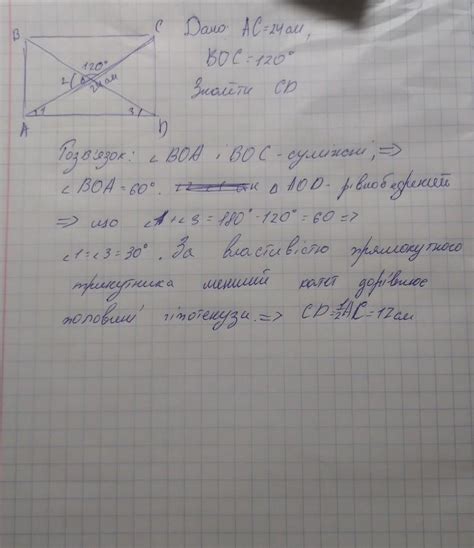 B
C
120°
2
O
24 см
1
3
A
D
Дано AC=24см,
BOC=120°
Знайти CD
Розвязок: ∠BOA і BOC-суміжні, ⇒
∠BOA=60°. Δ AOD- рівнобедрений
⇒ що ∠1+∠3=180°-120°=60 ⇒
∠1=∠3=30°. За властивістю прямокутного
трикутника менший катет дорівнює
половині гіпотенузи. ⇒ CD=½AC=12см